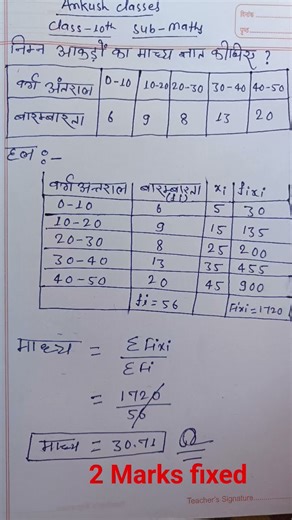 Ankush classes
class-10th sub-maths
निम्न आकड़ों का माध्य ज्ञात कीजिए ?
वर्ग अंतराल 0-10 10-20 20-30 30-40 40-50
बारम्बारता 6 9 8 13 20
हल :-
वर्ग अन्तराल बारम्बारता (fi) xi fixi
0-10 6 5 30
10-20 9 15 135
20-30 8 25 200
30-40 13 35 455
40-50 20 45 900
fi = 56 fixi = 1720
माध्य = Σfixi
Σfi
= 1720
56
माध्य = 30.71
2 Marks fixed
Teacher's Signature
दिनांक
पृष्ठ